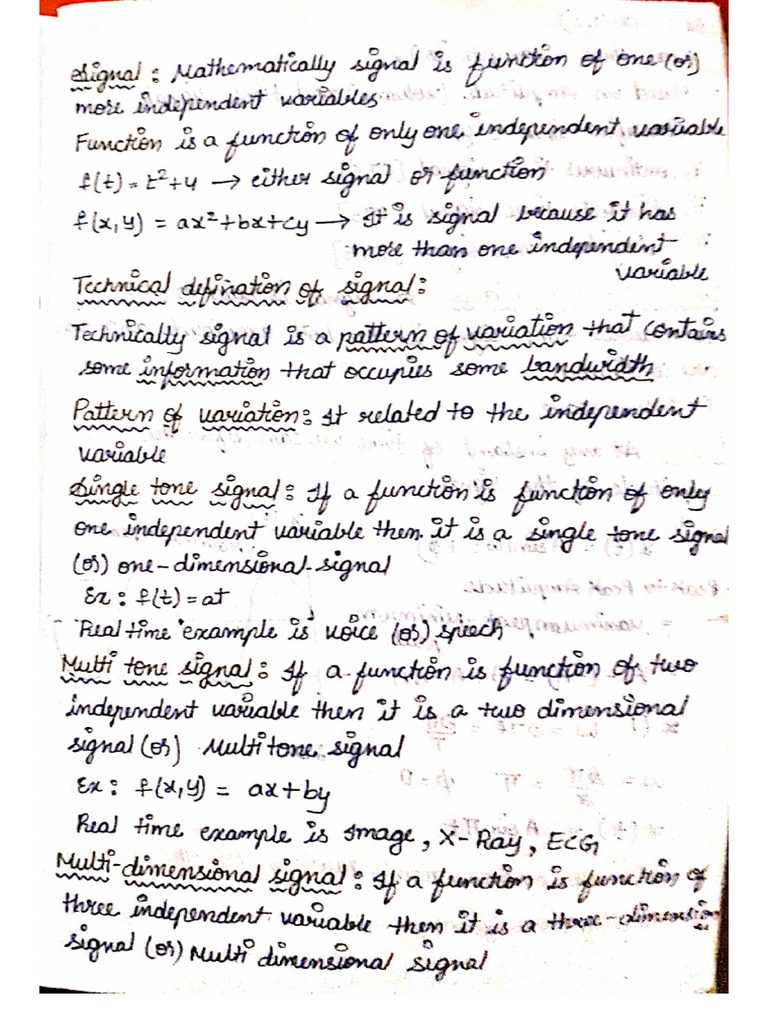 Signal: Mathematically signal is function of one (or)
more independent variables
Function is a function of only one independent variable
f(t) = t²+4 → either signal or function
f(x,y) = ax²+bx+cy → It is signal because it has
more than one independent
variable
Technical defination of signal:
Technically signal is a pattern of variation that contains
some information that occupies some bandwidth
Pattern of variation: It related to the independent
variable
Single tone signal: If a function is function of only
one independent variable then it is a single tone signal
(or) one-dimensional signal
Ex: f(t) = at
Real time example is voice (or) speech
Multi tone signal: If a function is function of two
independent variable then it is a two dimensional
signal (or) Multitone signal
Ex: f(x,y) = ax+by
Real time example is Image, X-Ray, ECG
Multi-dimensional signal: If a function is function of
three independent variable then it is a three-dimension
signal (or) Multi dimensional signal